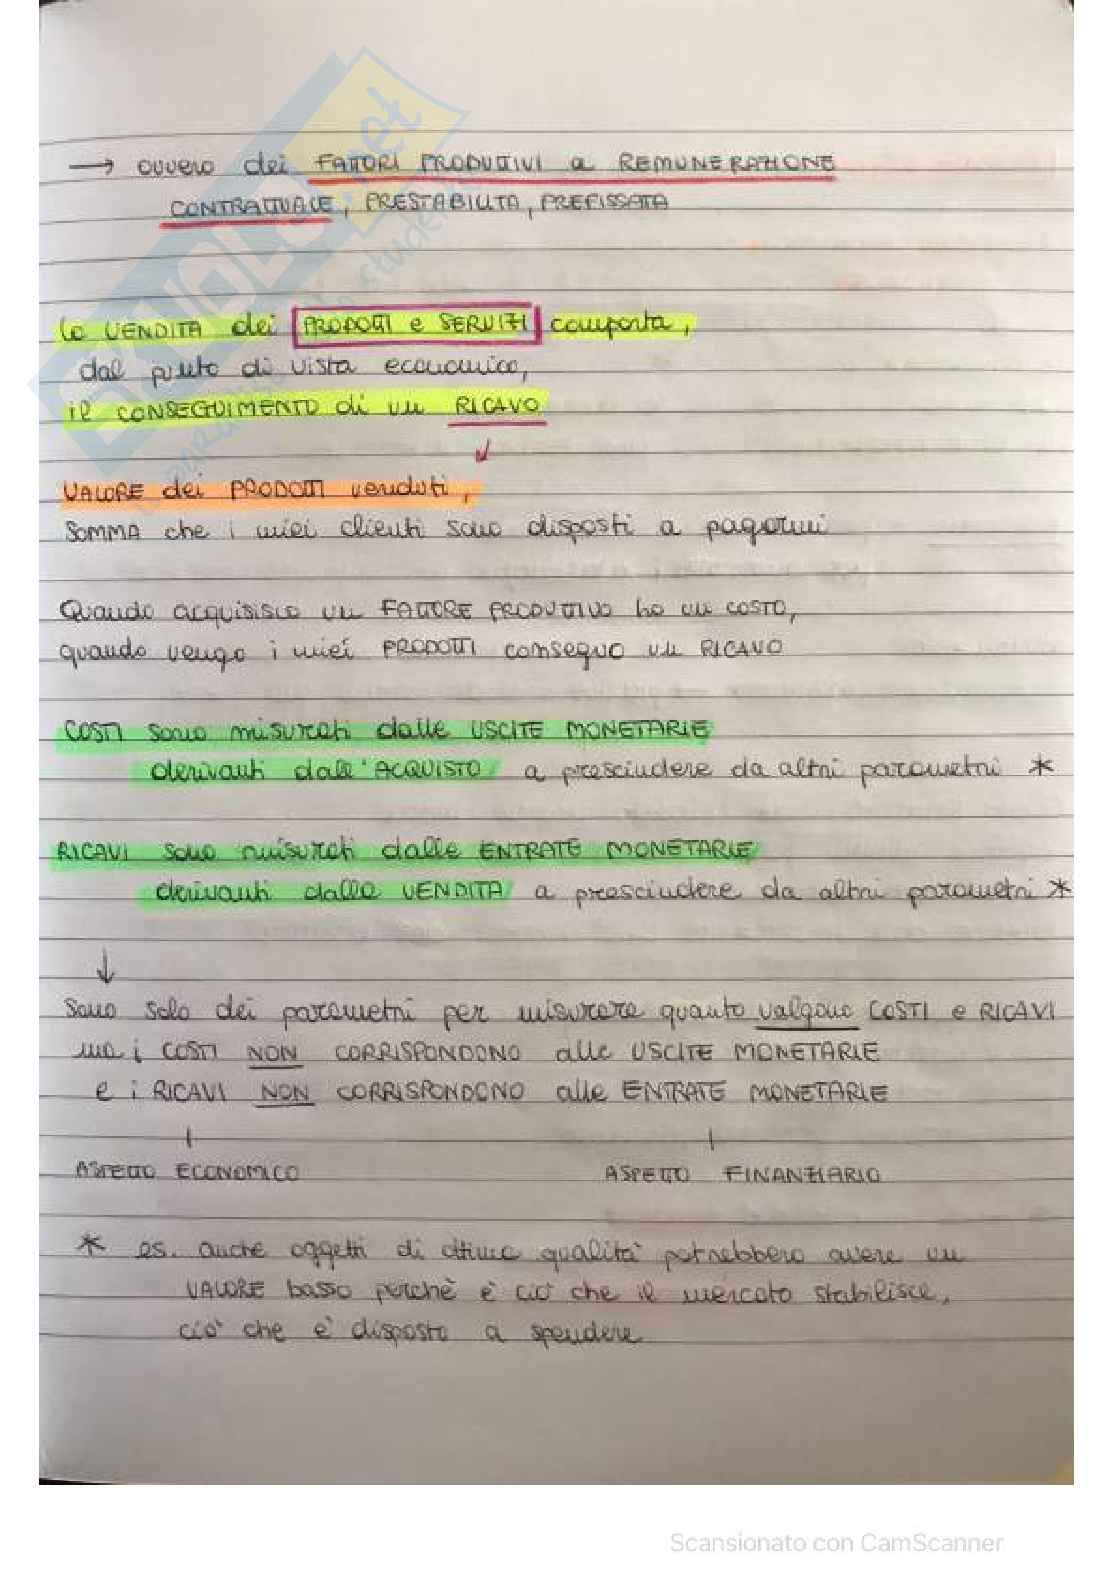 → ovvero dei FATTORI PRODUTTIVI a REMUNERAZIONE
CONTRATTUALE, PRESTABILITA, PREFISSATA
la VENDITA dei PRODOTTI e SERVIZI comporta,
dal punto di vista economico,
il CONSEGUIMENTO di un RICAVO
↓
VALORE dei PRODOTTI venduti,
SOMMA che i miei clienti sono disposti a pagarmi
Quando acquisisco un FATTORE PRODUTTIVO ho un COSTO,
quando vengo i miei PRODOTTI conseguo un RICAVO
COSTI sono misurati dalle USCITE MONETARIE
derivanti dall'ACQUISTO a prescindere da altri parametri *
RICAVI sono misurati dalle ENTRATE MONETARIE
derivanti dalla VENDITA a prescindere da altri parametri *
↓
Sono solo dei parametri per misurare quanto valgono COSTI e RICAVI
ma i COSTI NON CORRISPONDONO alle USCITE MONETARIE
e i RICAVI NON CORRISPONDONO alle ENTRATE MONETARIE
ASPETTO ECONOMICO ASPETTO FINANZIARIO
* es. anche oggetti di ottima qualità potrebbero avere un
VALORE basso perchè è ciò che il mercato stabilisce,
ciò che è disposto a spendere
Scansionato con CamScanner